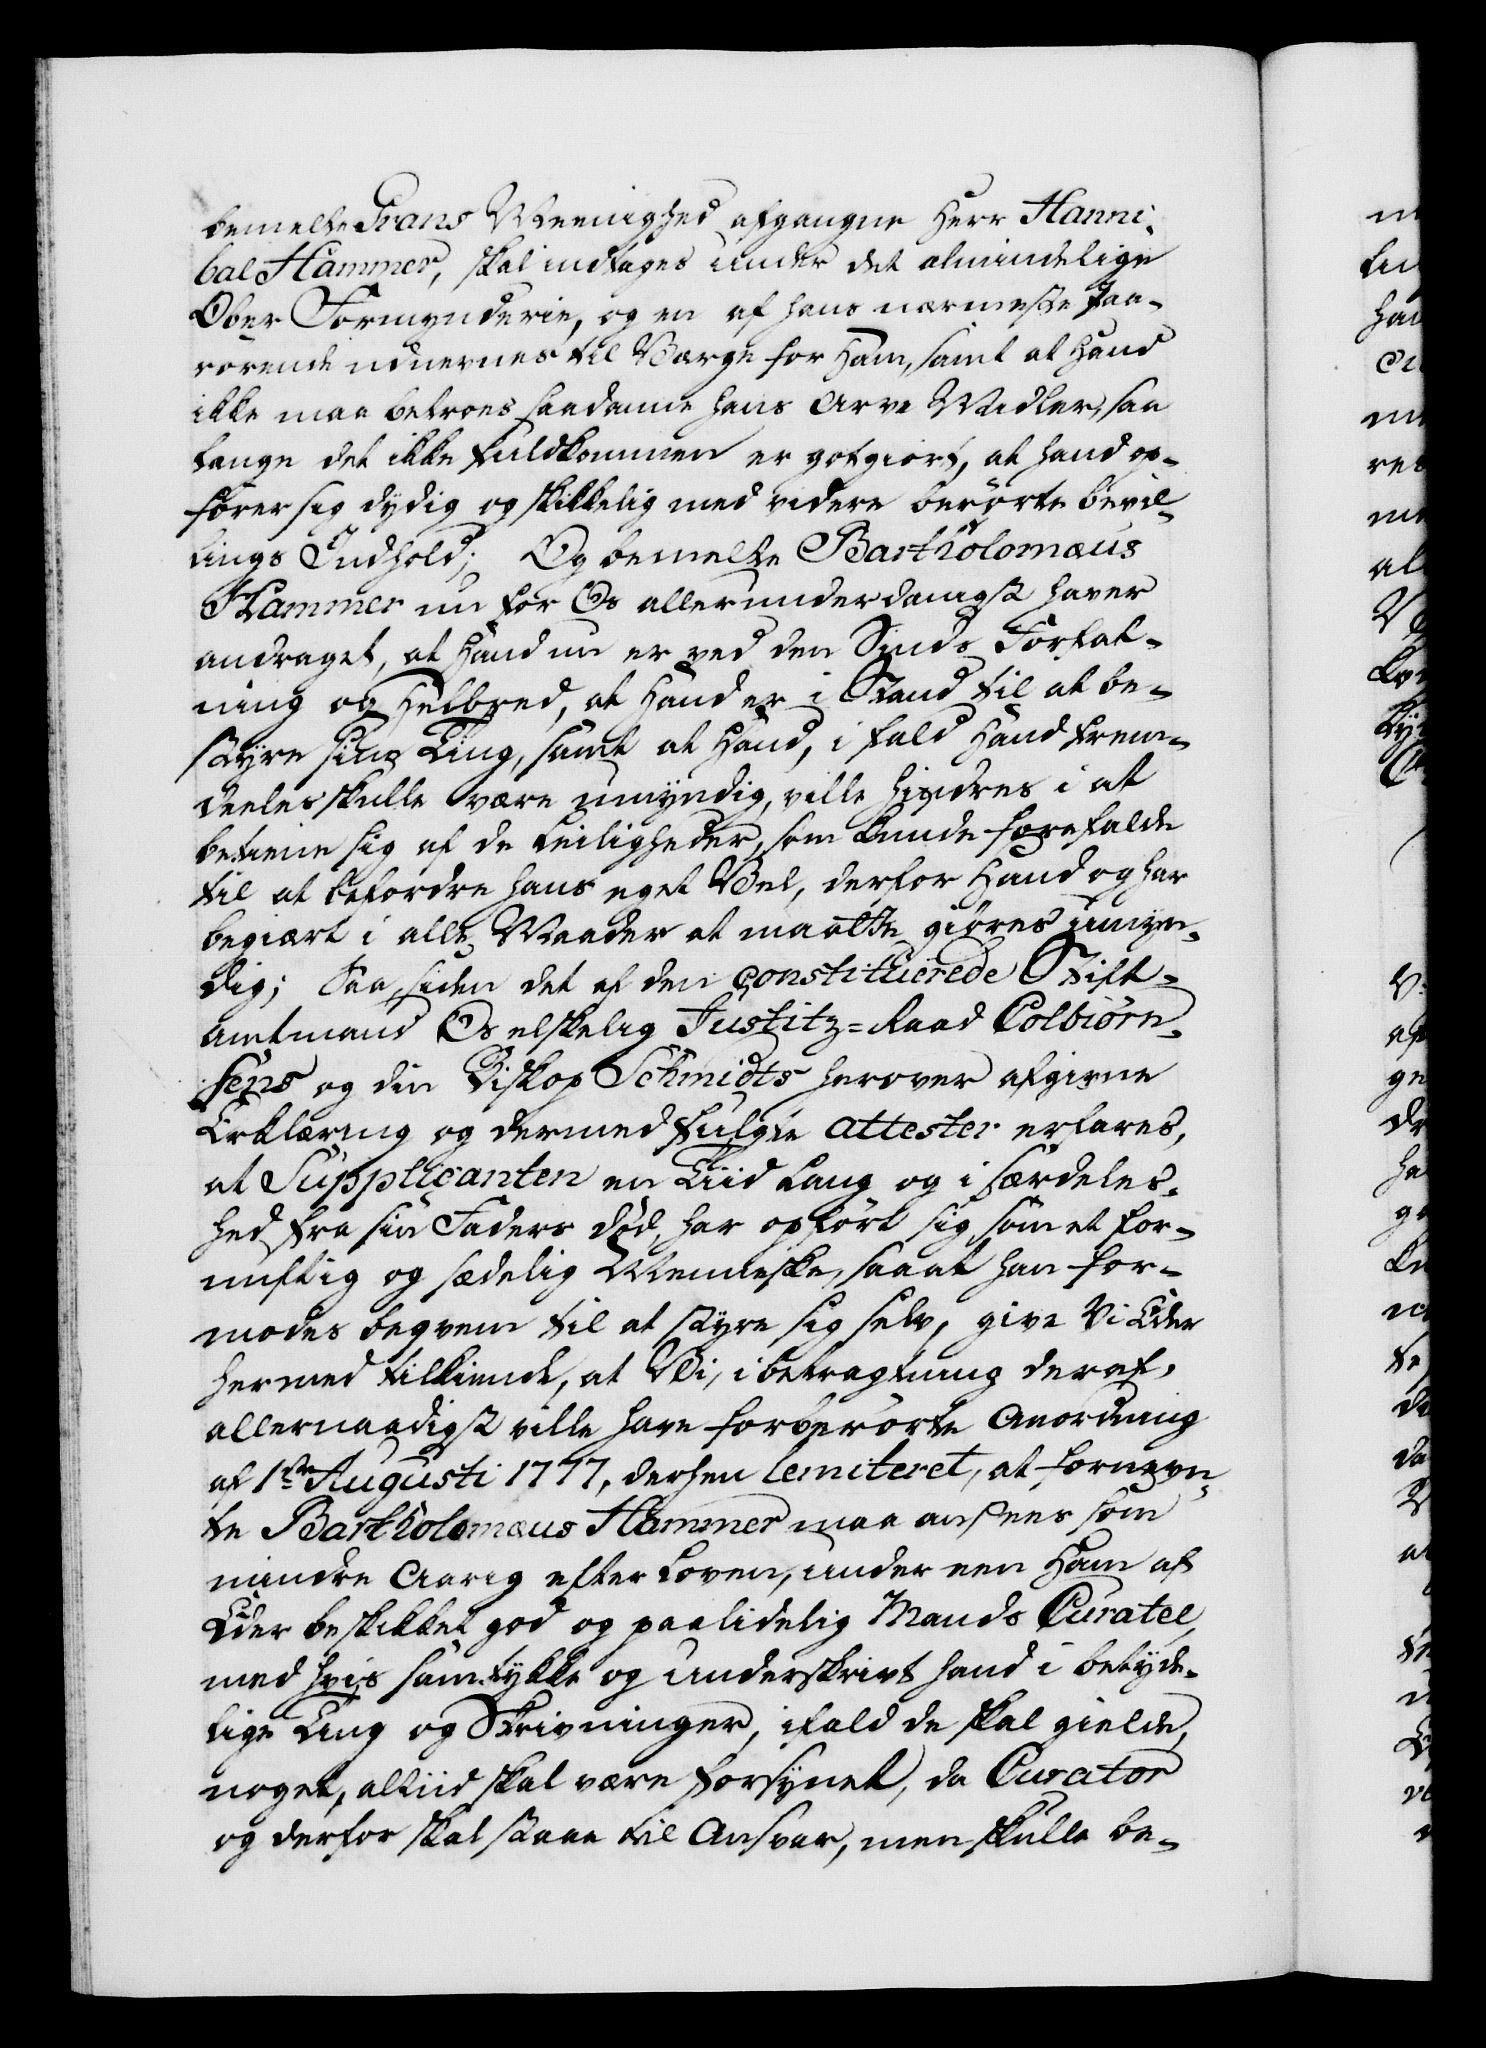 bemelte Grans Meenighed afgangne Herr Hanni-
bal Hammer, skal indtages under det almindelige
Ober Formynderie, og en af hans nærmeste Paa-
rørende udnevnes til Værge for Ham, samt at Hand
ikke maa betroes saadanne hans Arve Midler, saa
længe det ikke fuldkommen er gotgiort, at hand op-
fører sig dydig og skikkelig med videre berørte Bevil-
lings Indhold; Og bemelte Bartholomæus
Hammer nu for Os allerunderdanigst haver
andraget, at Hand nu er ved den Sinds Forfat-
ning og Helbred, at Hand er i Stand til at be-
styre sine Ting, samt at Hand, i fald Hand frem-
deeles skulle være umyndig, ville hindres i at
betiene sig af de Leiligheder, som kunde forefalde
til at befordre hans eget Vel, derfor Hand og har
begiært i alle Maader at maatte giøres umyn-
dig; Saa, siden det af den constituerede Stift-
amtmand Os elskelig Justitz-Raad Colbiørn-
sens og din Biskop Schmidts herover afgivne
Erklæring og dermed fulgte attester erfares,
at Supplicanten en Tiid lang og i særdeles-
hed fra sin Faders død, har opført sig som et for-
nuftig og sædelig Menneske, saa at han for-
modes beqvem til at styre sig selv, give Vi Eder
hermed tilkiende, at Vi, i betragtning deraf,
allernaadigst ville have forberørte Anordning
af 1ste Augusti 1777, derhen lemiteret, at fornevn-
te Bartholomæus Hammer maa ansees som
mindre Aarig efter Loven, under een Ham af
Eder beskikket god og paalidelig Mands Curatel,
med hvis samtykke og underskrivt hand i betyde-
lige Ting og Skrivninger, ifald de skal gielde,
noget, altiid skal være forsynet, da Curator
og derfor skal staae til Ansvar, men skulle be-